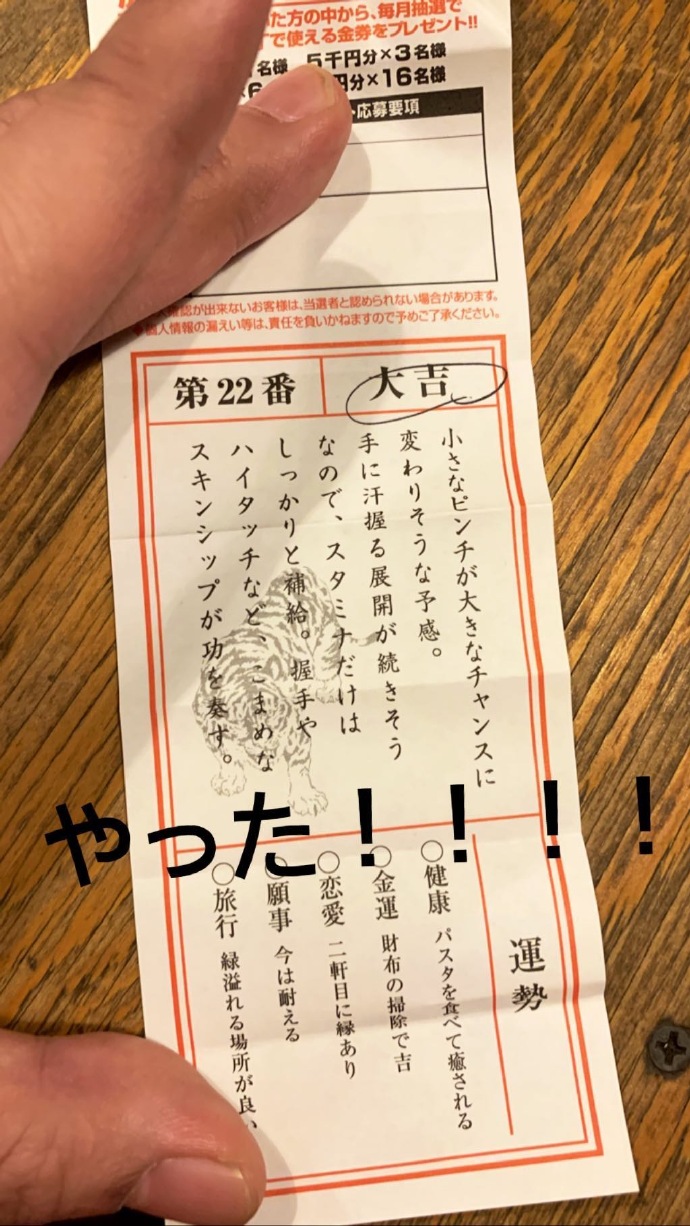 た方の中から、毎月抽選で
で使える金券をプレゼント!!
名様 5千円分×3名様
円分×16名様
応募要項
確認が出来ないお客様は、当選者と認められない場合があります。
個人情報の漏えい等は、責任を負いかねますので予めご了承ください。
第22番
大吉
小さなピンチが大きなチャンスに
変わりそうな予感。
手に汗握る展開が続きそう
なので、スタミナだけは
しっかりと補給。握手や
ハイタッチなど、こまめな
スキンシップが功を奏す。
やった!!!!
運勢
○健康 パスタを食べて癒される
○金運 財布の掃除で吉
○恋愛 二軒目に縁あり
○願事 今は耐える
○旅行 緑溢れる場所が良い